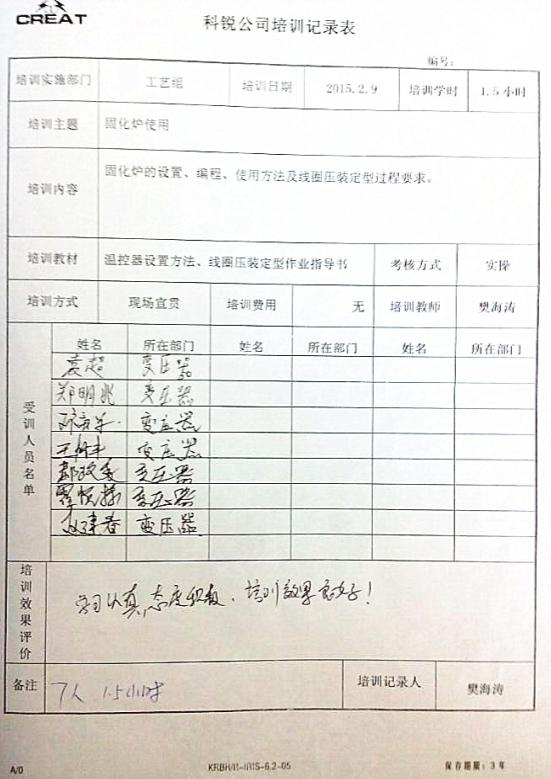 CREAT
科锐公司培训记录表
编号:
培训实施部门 工艺组 培训日期 2015.2.9 培训学时 1.5 小时
培训主题 固化炉使用
培训内容 固化炉的设置、编程、使用方法及线圈压装定型过程要求。
培训教材 温控器设置方法、线圈压装定型作业指导书 考核方式 实操
培训方式 现场宣贯 培训费用 无 培训教师 樊海涛
受训人员名单
姓名 所在部门 姓名 所在部门 姓名 所在部门
袁超 变压器
郑明兆 变压器
变压器
变压器
变压器
变压器
赵建春 变压器
培训效果评价 学习认真,态度积极,培训效果良好!
备注 7人 1.5小时 培训记录人 樊海涛
A/0 保存期限:3年